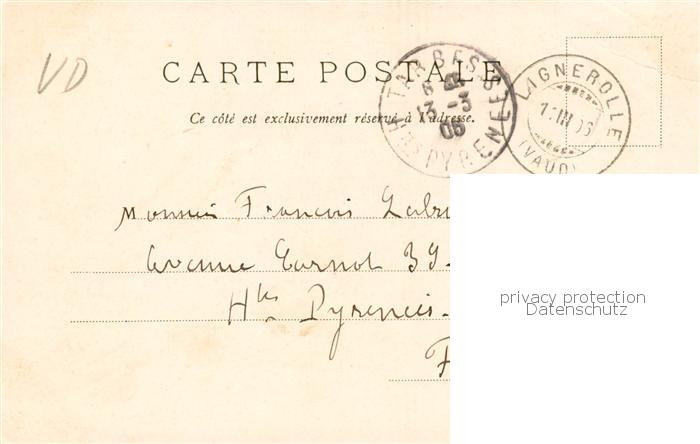 VD
CARTE POSTALE
Ce côté est exclusivement réservé à l'adresse.
TARBES
Htes PYRENEES
13 -3
06
LIGNEROLLE
(VAUD)
Monsieur François
Avenue Carnot 39.
Htes Pyrénées.
F
privacy protection
Datenschutz